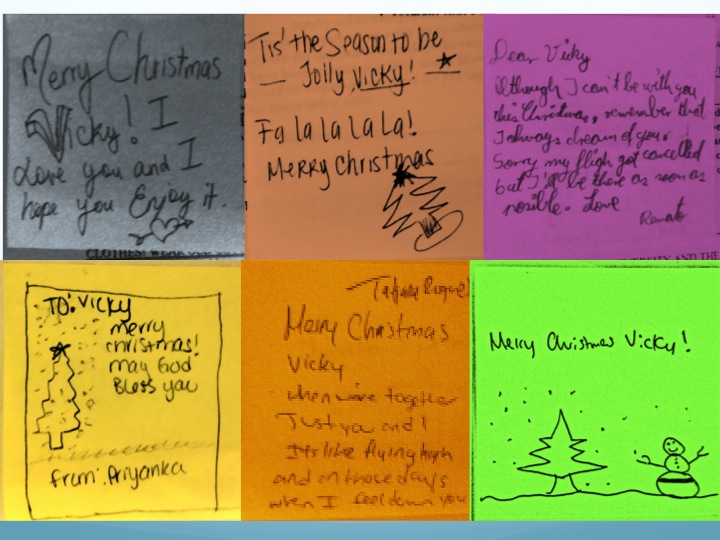 Merry Christmas
Vicky! I
Love you and I
hope you Enjoy it.
CLOTHES: WEAR
Tis' the Season to be
— Jolly Vicky! —
Fa la la la La!
Merry Christmas
Dear Vicky
Although I can't be with you
this Christmas, remember that
I always dream of you.
Sorry my fligh got cancelled
but I'll be there as soon as
posible. Love
Renato
AND THE
TO: Vicky
merry
christmas!
may God
Bless you
from: Priyanka
Merry Christmas
Vicky
when we're together
Just you and I
Its like flying high
and on those days
when I feel down you
Merry Christmas Vicky!